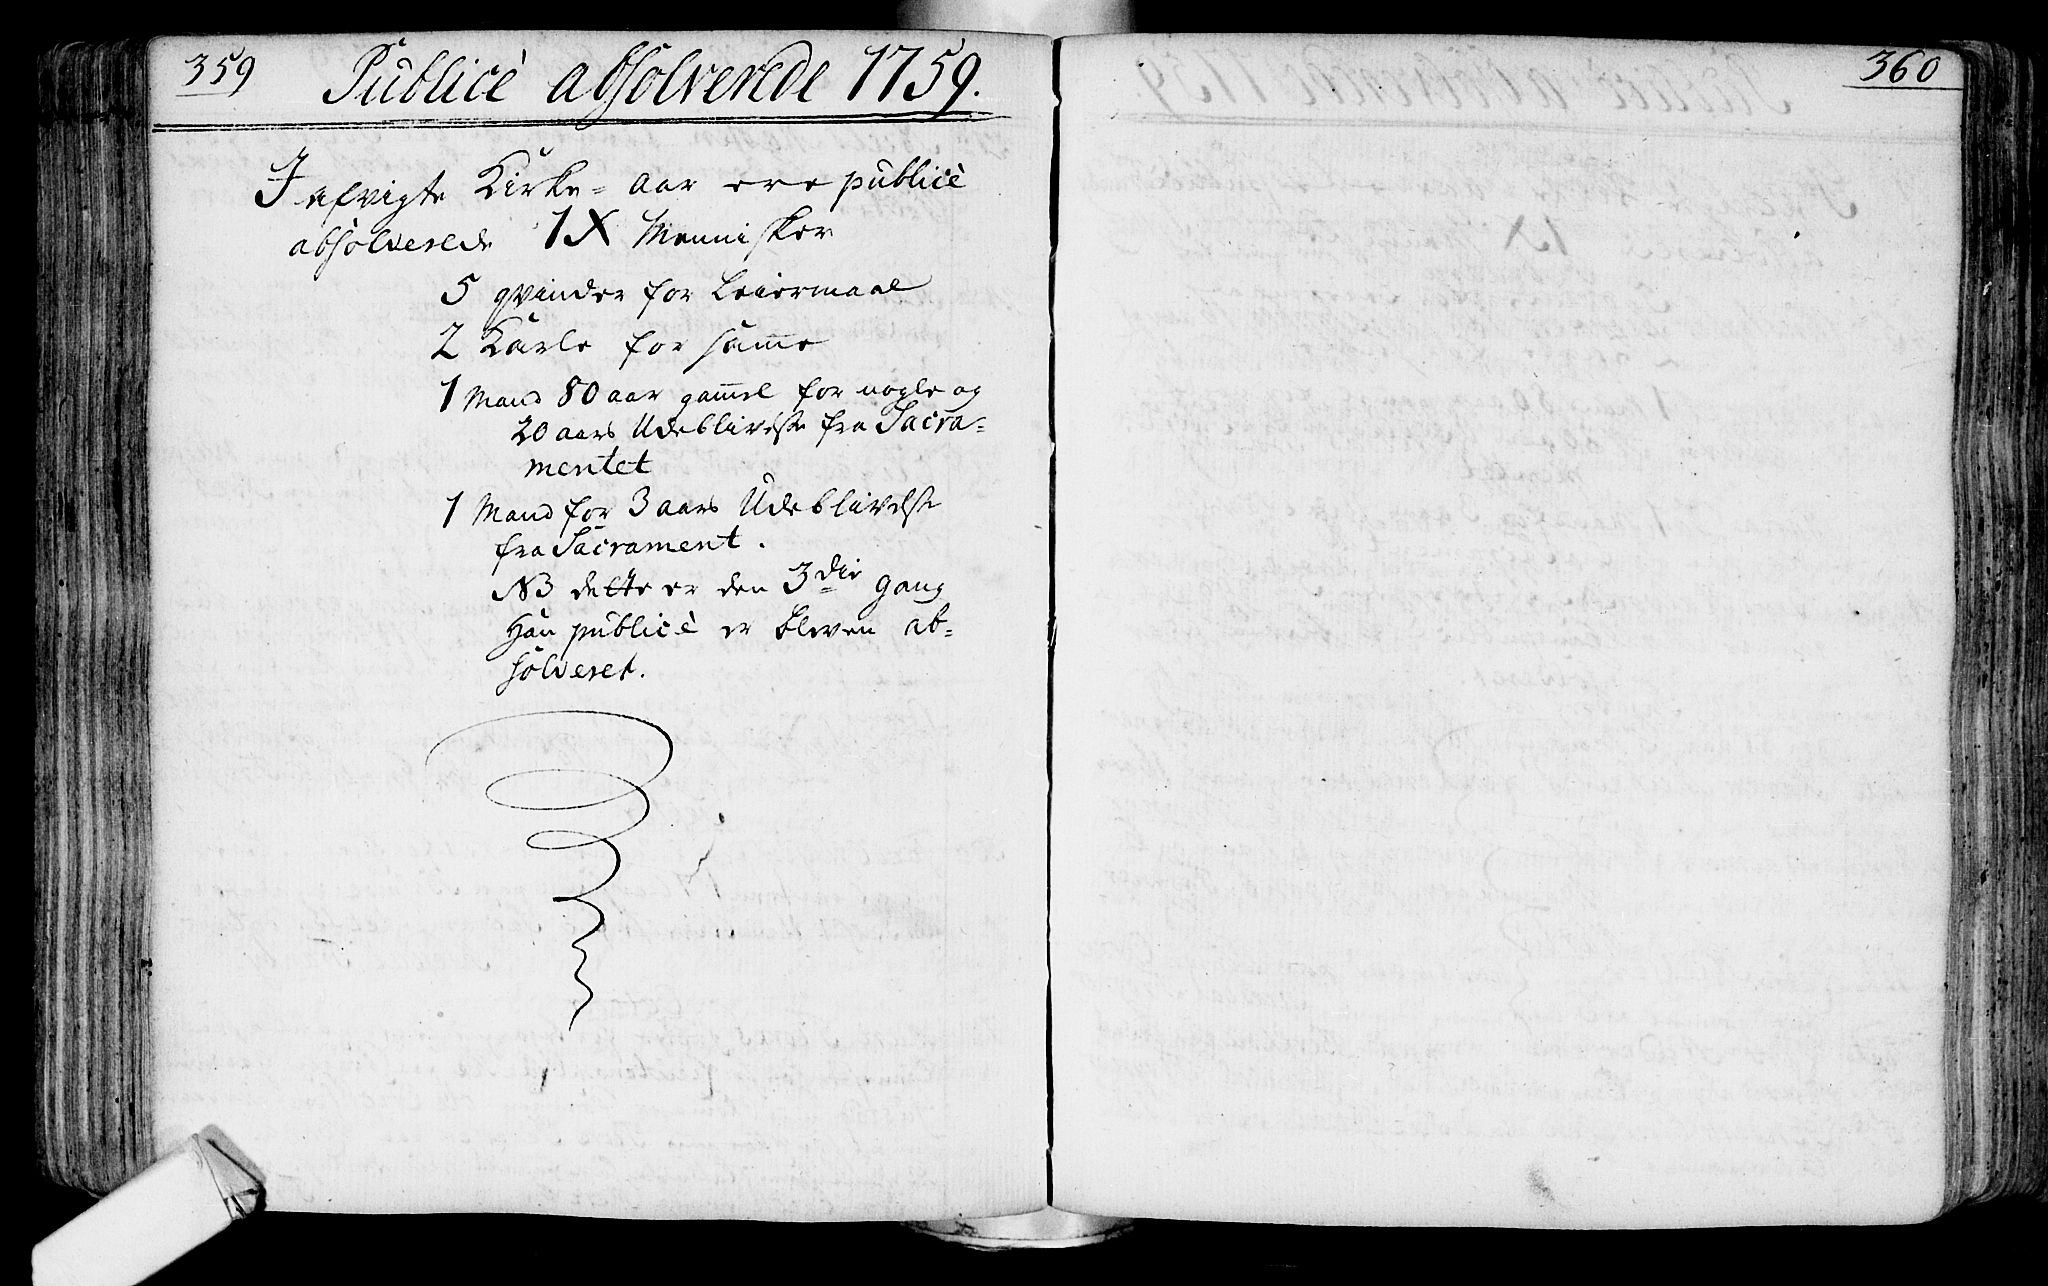 359
Publicè absolverede 1759.
I afvigte Kirke= aar ere publicè
absolverede 1X Mennisker
5 qvinder for Leiermaal
2 Karle for samme
1 Mand 80 aar gammel for nogle og
20 aars Udeblivelse fra Sacra=
mentet
1 Mand for 3 aars Udeblivelse
fra Sacrament.
NB dette er den 3die gang
Han publicè er bleven ab=
solveret.
360